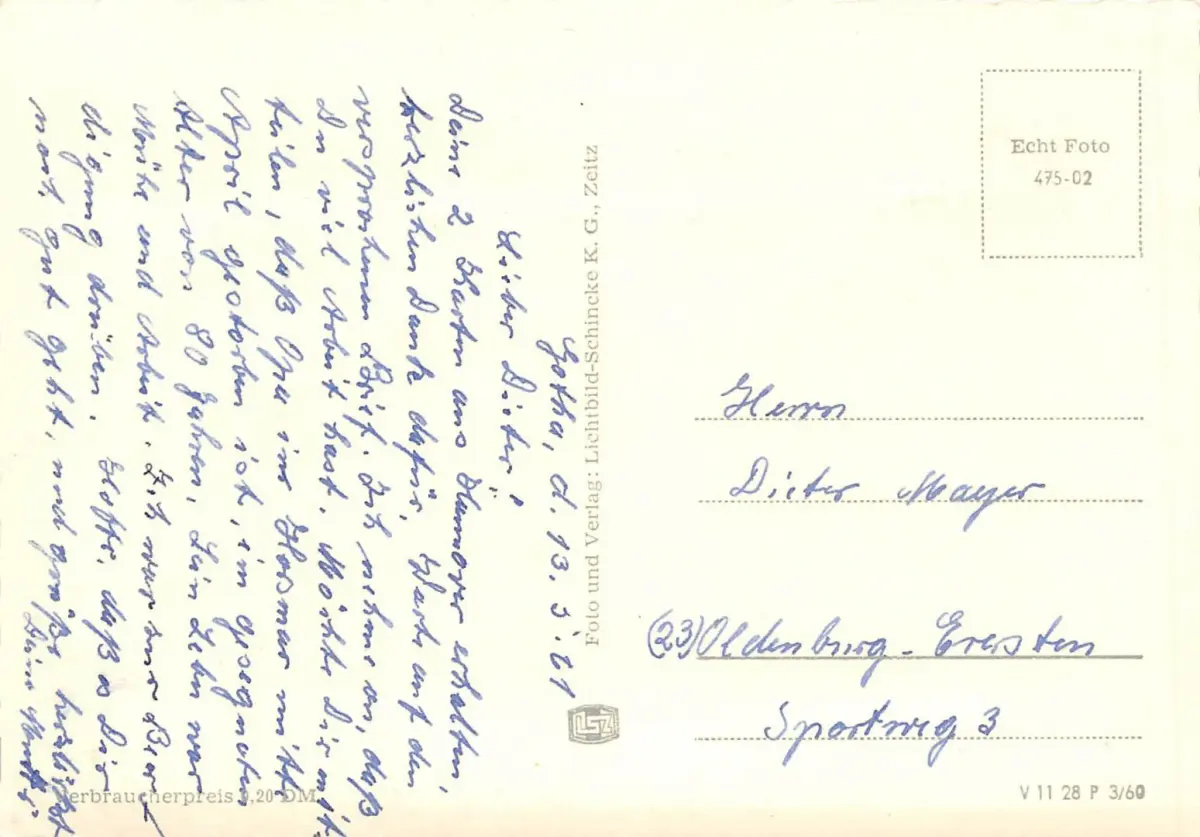 Gotha, d. 13. 5. 61
Lieber Dieter!
Deine 2 Karten aus Hannover erhalten,
herzlichen Dank dafür. Warte auf den
versprochenen Brief. Ich nehme an, daß
Du viel Arbeit hast. Möchte Dir mit=
teilen, daß Opa in Horsmar mitte
April gestorben ist, im gesegneten
Alter von 80 Jahren. Sein Leben war
Mühe und Arbeit. Ich war zur Beer=
digung drüben. Hoffe, daß es Dir
noch gut geht, und grüße herzlichst
Deine Mutti.
Foto und Verlag: Lichtbild-Schincke K. G., Zeitz
LSZ
Verbraucherpreis 0,20 DM
Echt Foto
475-02
Herrn
Dieter Mayer
(23) Oldenburg - Eversten
Sportweg 3
V 11 28 P 3/60